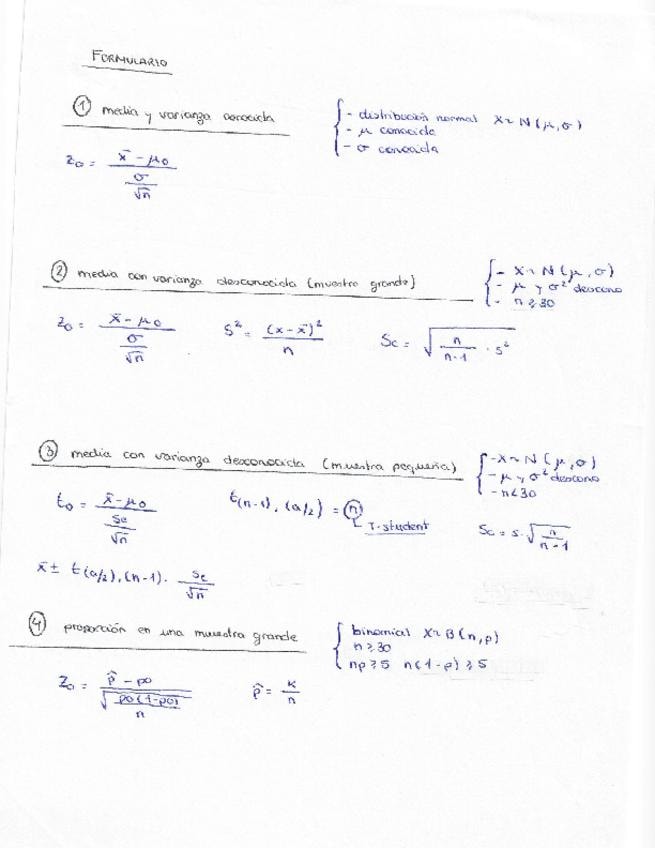 FORMULARIO
① media y varianza conocida
- distribución normal X~N(μ,σ)
- μ conocida
- σ conocida
z₀ = (x̄ - μ₀) / (σ/√n)
② media con varianza desconocida (muestra grande)
- X~N(μ,σ)
- μ y σ² descono
- n ≥ 30
z₀ = (x̄ - μ₀) / (σ/√n)   S² = (x-x̄)² / n   Sc = √(n/(n-1) · s²)
③ media con varianza desconocida (muestra pequeña)
- X~N(μ,σ)
- μ y σ² descono
- n<30
t₀ = (x̄ - μ₀) / (Sc/√n)   t(n-1), (α/2) = ⓝ   Sc = s·√(n/(n-1))
T-student
x̄ ± t(α/2), (n-1) · Sc/√n
④ proporción en una muestra grande
binomial X~B(n,p)
n ≥ 30
np ≥ 5 n(1-p) ≥ 5
z₀ = (p̂ - p0) / √(p0(1-p0)/n)   p̂ = k/n